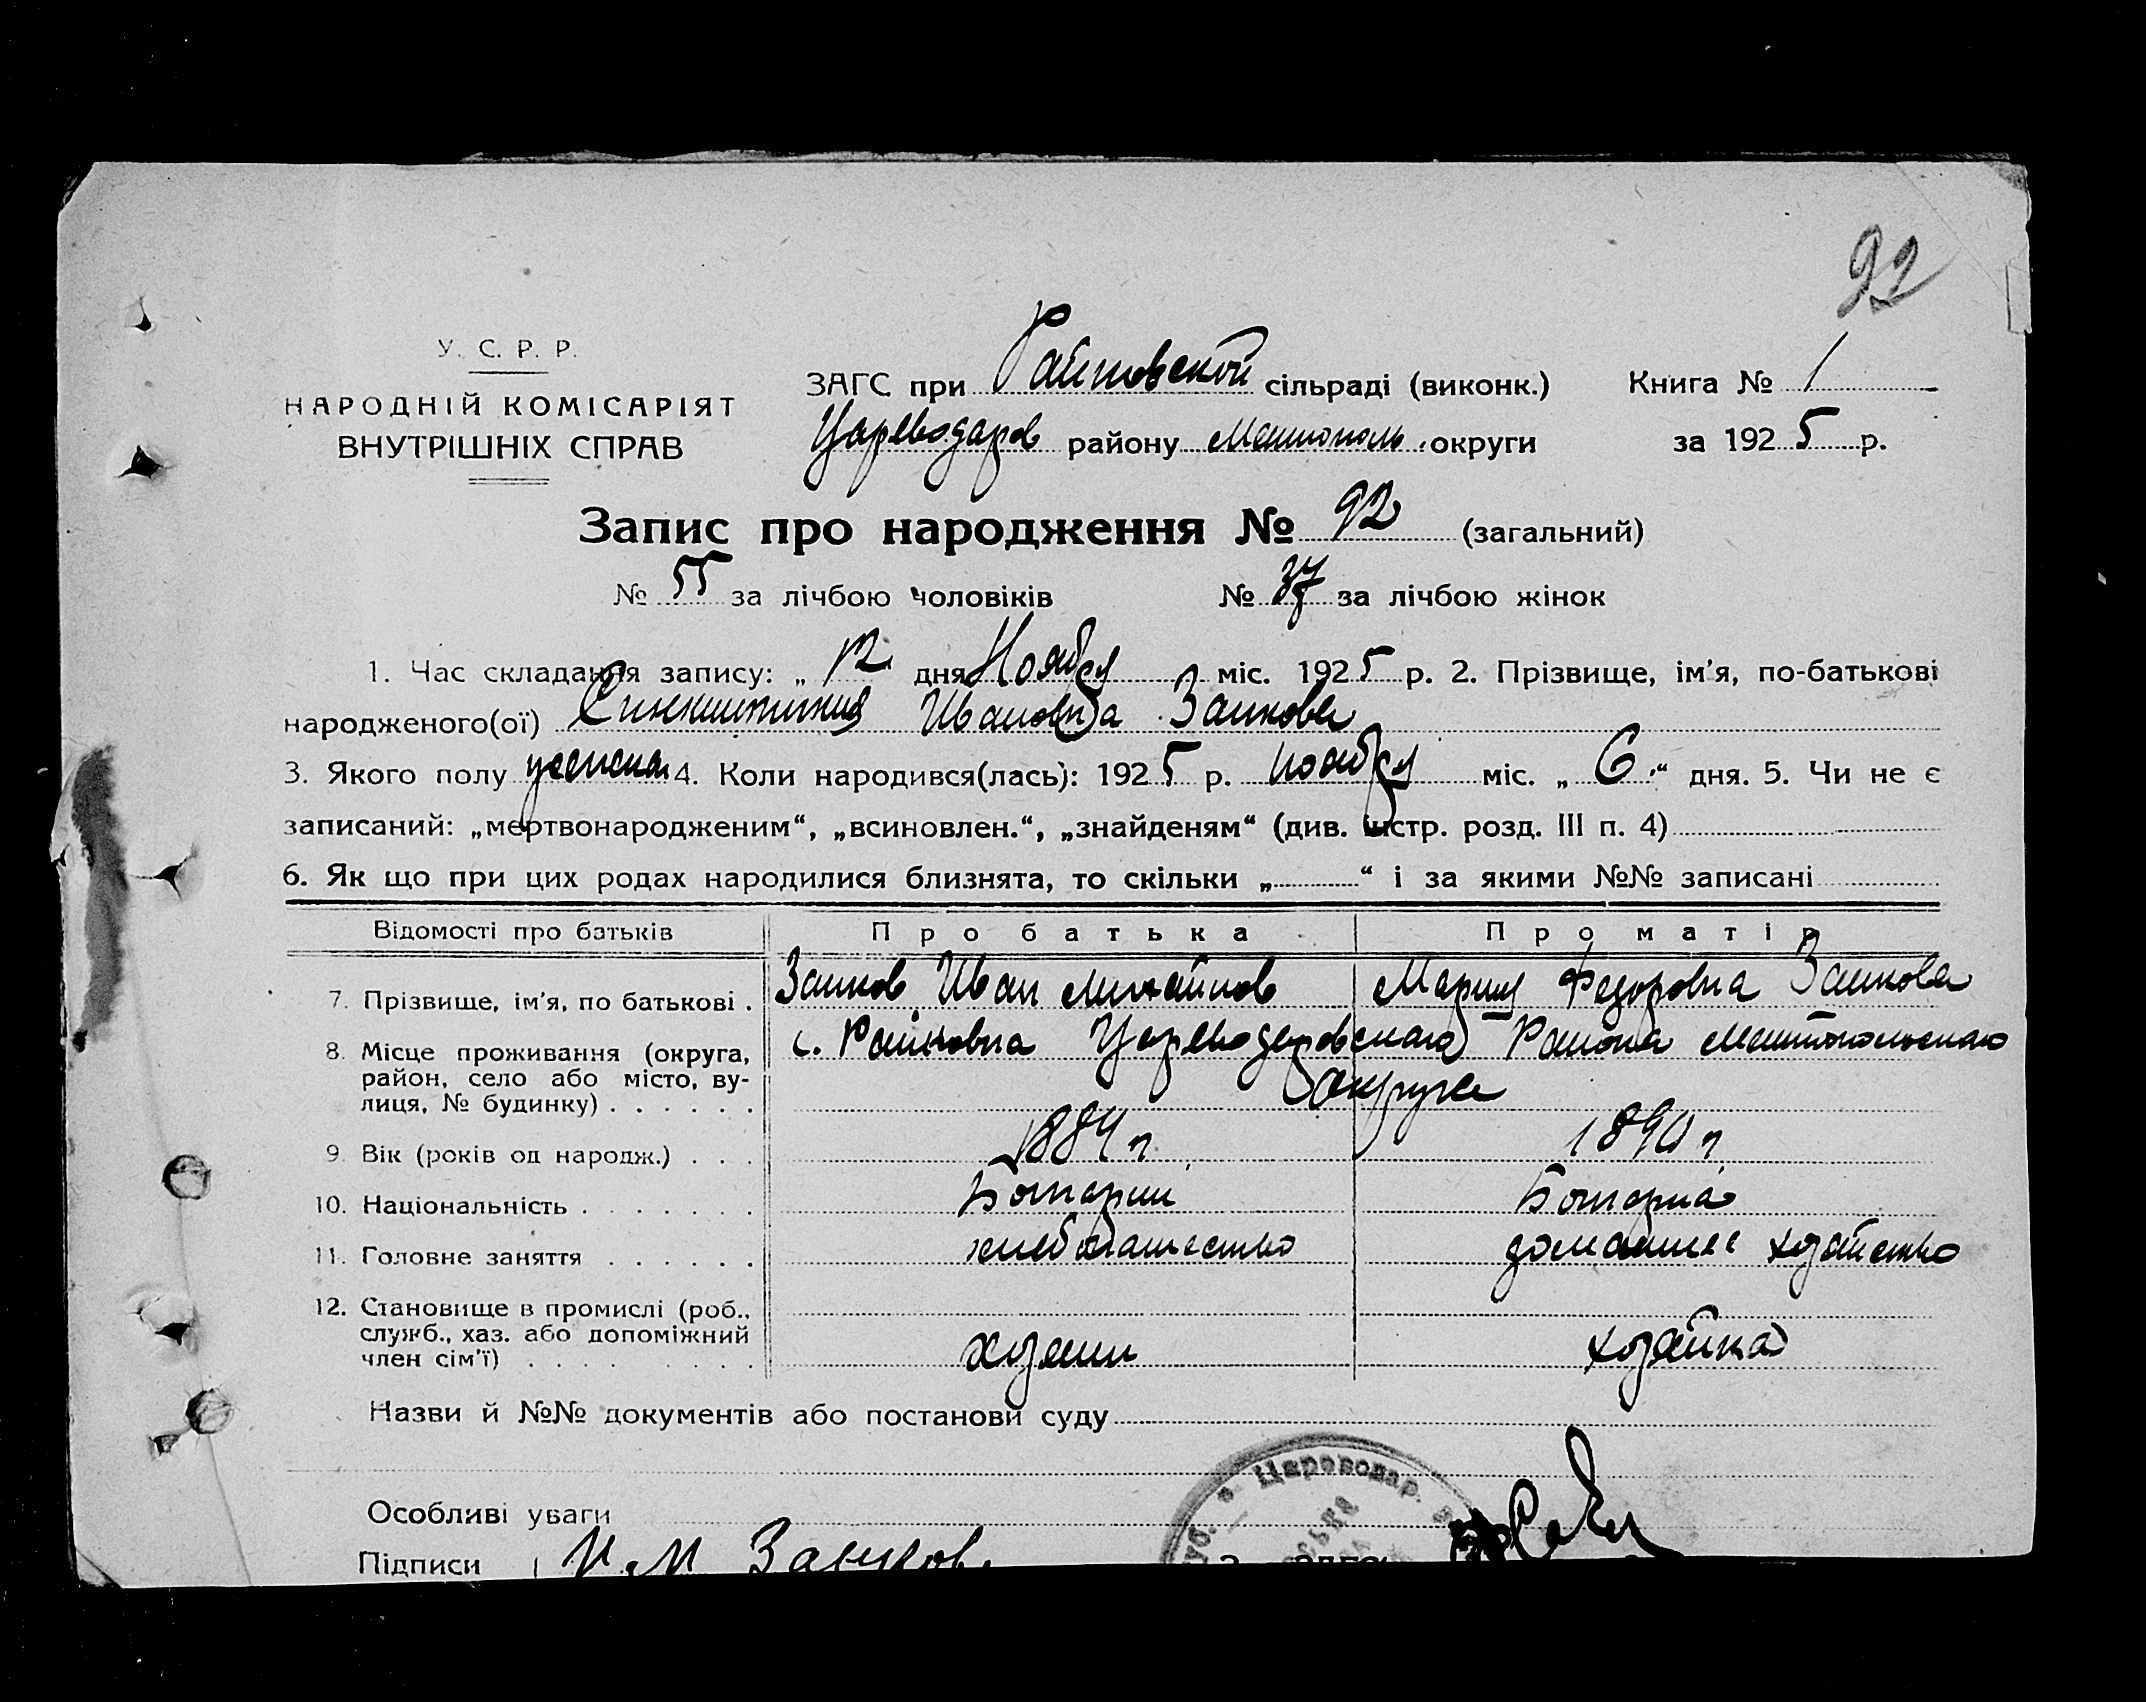 92
У. С. Р. Р.
НАРОДНІЙ КОМІСАРІЯТ
ВНУТРІШНІХ СПРАВ
ЗАГС при Райновской сільраді (виконк.) Книга № 1
Цареводаров району Мелитополь округи за 1925 р.
Запис про народження № 92 (загальний)
№ 55 за лічбою чоловіків № 37 за лічбою жінок
1. Час складання запису: „12 дня Ноября міс. 1925 р. 2. Прізвище, ім'я, по-батькові
народженого(ої) Ивановна Заикова
3. Якого полу женска 4. Коли народився(лась): 1925 р. ноября міс. „6“ дня. 5. Чи не є
записаний: „мертвонародженим“, „всиновлен.“, „знайденям“ (див. інстр. розд. III п. 4)
6. Як що при цих родах народилися близнята, то скільки „ “ і за якими №№ записані
Відомості про батьків Про батька Про матір
7. Прізвище, ім'я, по батькові . Заиков Иван Михайлов Мария Федоровна Заикова
8. Місце проживання (округа, район, село або місто, вулиця, № будинку) . . . . . . с. Райновка Цареводаровского Района Мелитопольского
округа
9. Вік (років од народж.) . . . 1884 г 1890 г
10. Національність . . . . . . . Болгарин Болгарка
11. Головне заняття . . . . . . хлебопашество домашнее хозяйство
12. Становище в промислі (роб., служб., хаз. або допоміжний член сім'ї) . . . . . . . . . хозяин хозяйка
Назви й №№ документів або постанови суду
Цареводар.
Особливі уваги
Підписи И. М. Заиков